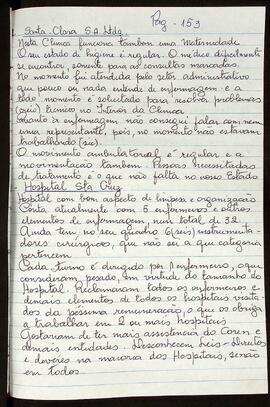 Pág - 153
Santa Clara S.A Ltda.
Nesta Clínica funciona tambem uma Maternidade
O seu estado de higiene é regular. O médico dificilmente
se encontra, somente para as consultas marcadas.
No momento fui atendida pelo setor administrativo
que pouco ou nada entende de enfermagem - e a
todo momento é solicitado para resolver problemas
(sic) Técnico no Interior da Clínica
Quanto à enfermagem não consegui falar com nem
uma representante, pois, no momento não estavam
trabalhando (sic).
O movimento ambulatorial é regular e a
movimentação tambem. Pessoas necessitadas
de tratamento é o que não falta no nosso Estado
Hospital Sta Cruz
Hospital com bom aspecto de limpeza e organização
Conta atualmente com 5 enfermeiros e outros
elementos de enfermagem no total de 32.
Ainda tem no seu quadro 6 (seis) instrumenta-
dores cirurgicos, que não sei a que categoria
pertencem
Cada turno é dirigido por 1 enfermeiro, o que
consideram, pesado, em virtude do tamanho do
Hospital. Reclamaram todos os enfermeiros e
demais elementos de todos os hospitais visita-
dos da péssima remuneração, o que os obriga
a trabalhar em 2 ou mais hospitais
Gostariam de ter mais assistência do Coren e
demais entidades. Desconhecem Leis - Direitos
e deveres na maioria dos Hospitais, senão
em todos